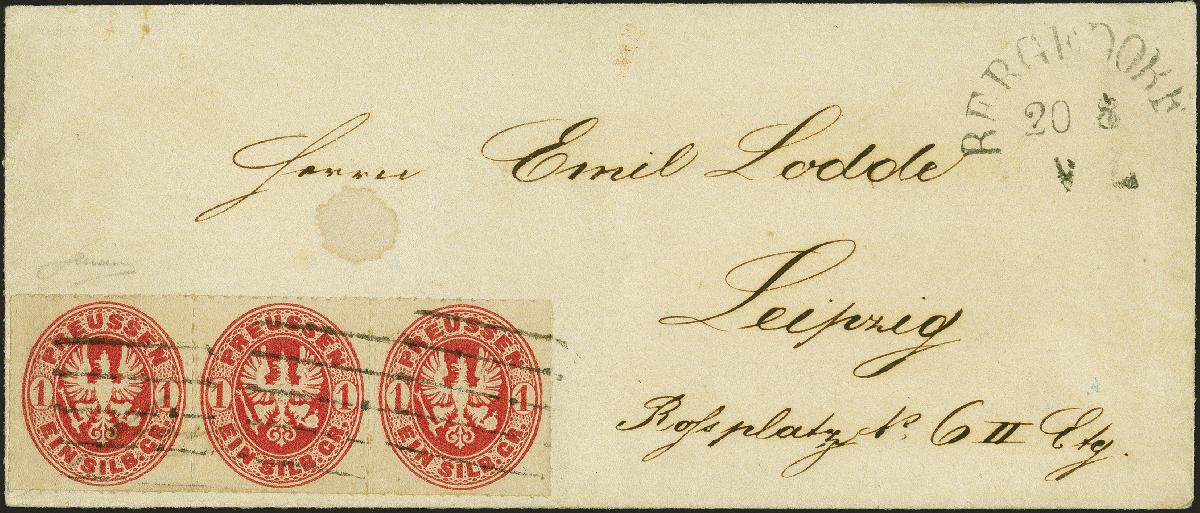 BERGEDORF
20 8
Herrn Emil Lodde
Leipzig
Roſsplatz No. 6 II Etg.
PREUSSEN
1 1
EIN SILB.GR.
PREUSSEN
1 1
EIN SILB.GR.
PREUSSEN
1 1
EIN SILB.GR.